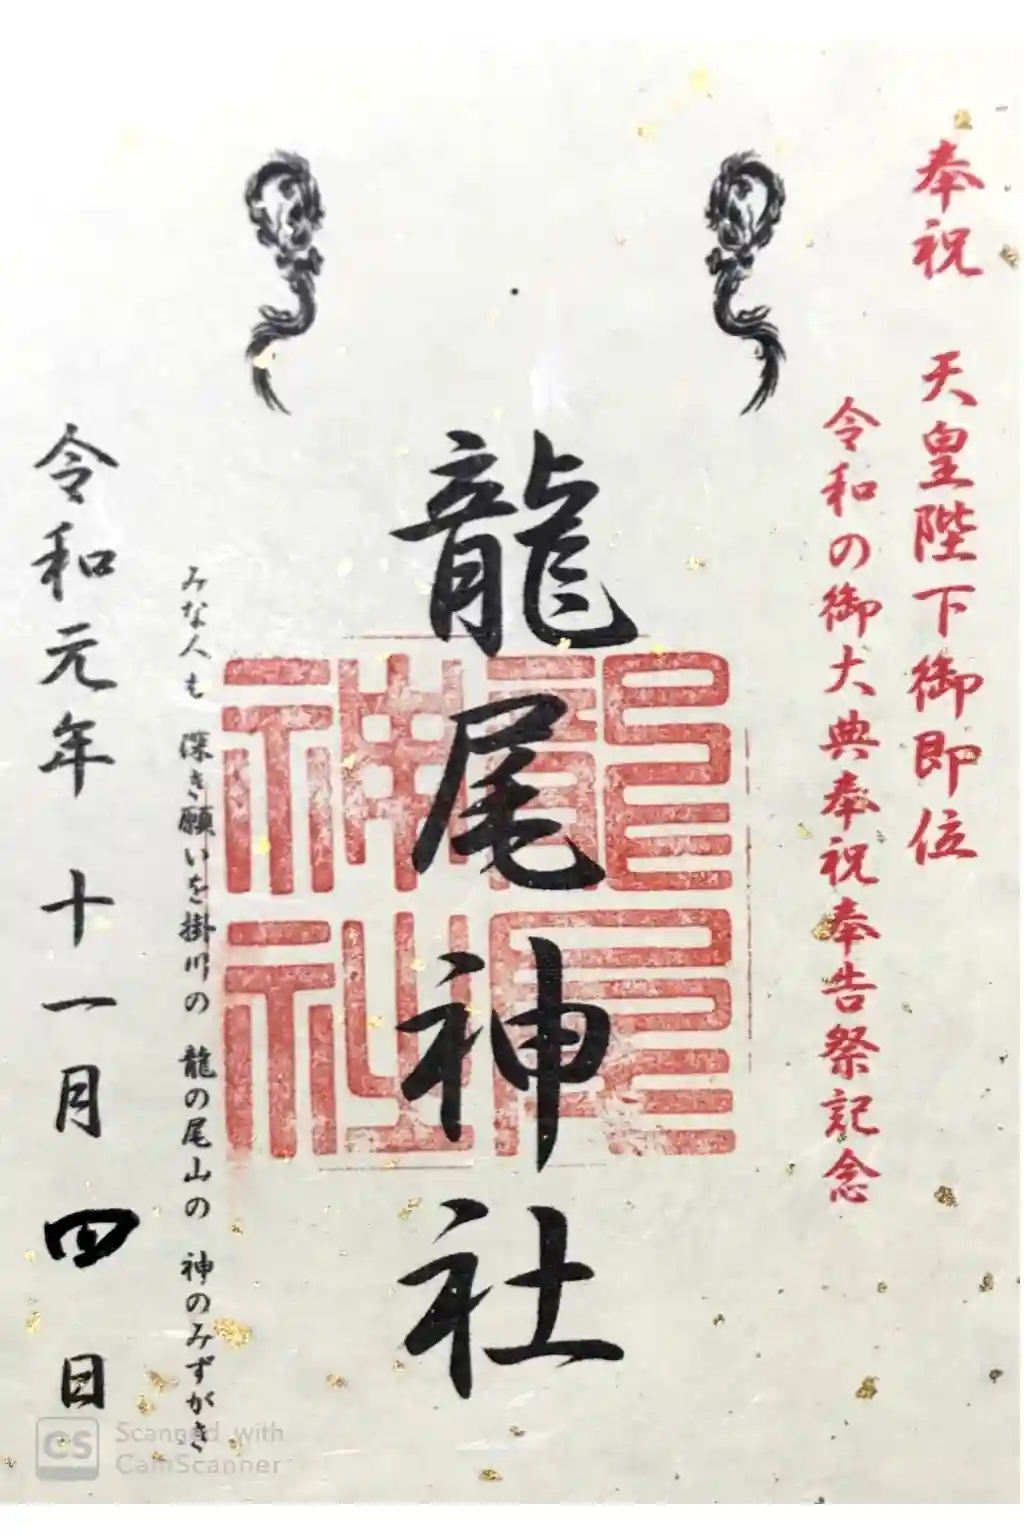 奉祝　天皇陛下御即位
令和の御大典奉祝奉告祭記念
龍尾神社
龍尾
神社
みな人も　深き願いを掛川の　龍の尾山の　神のみずがき
令和元年　十一月　四日
CS Scanned with
CamScanner